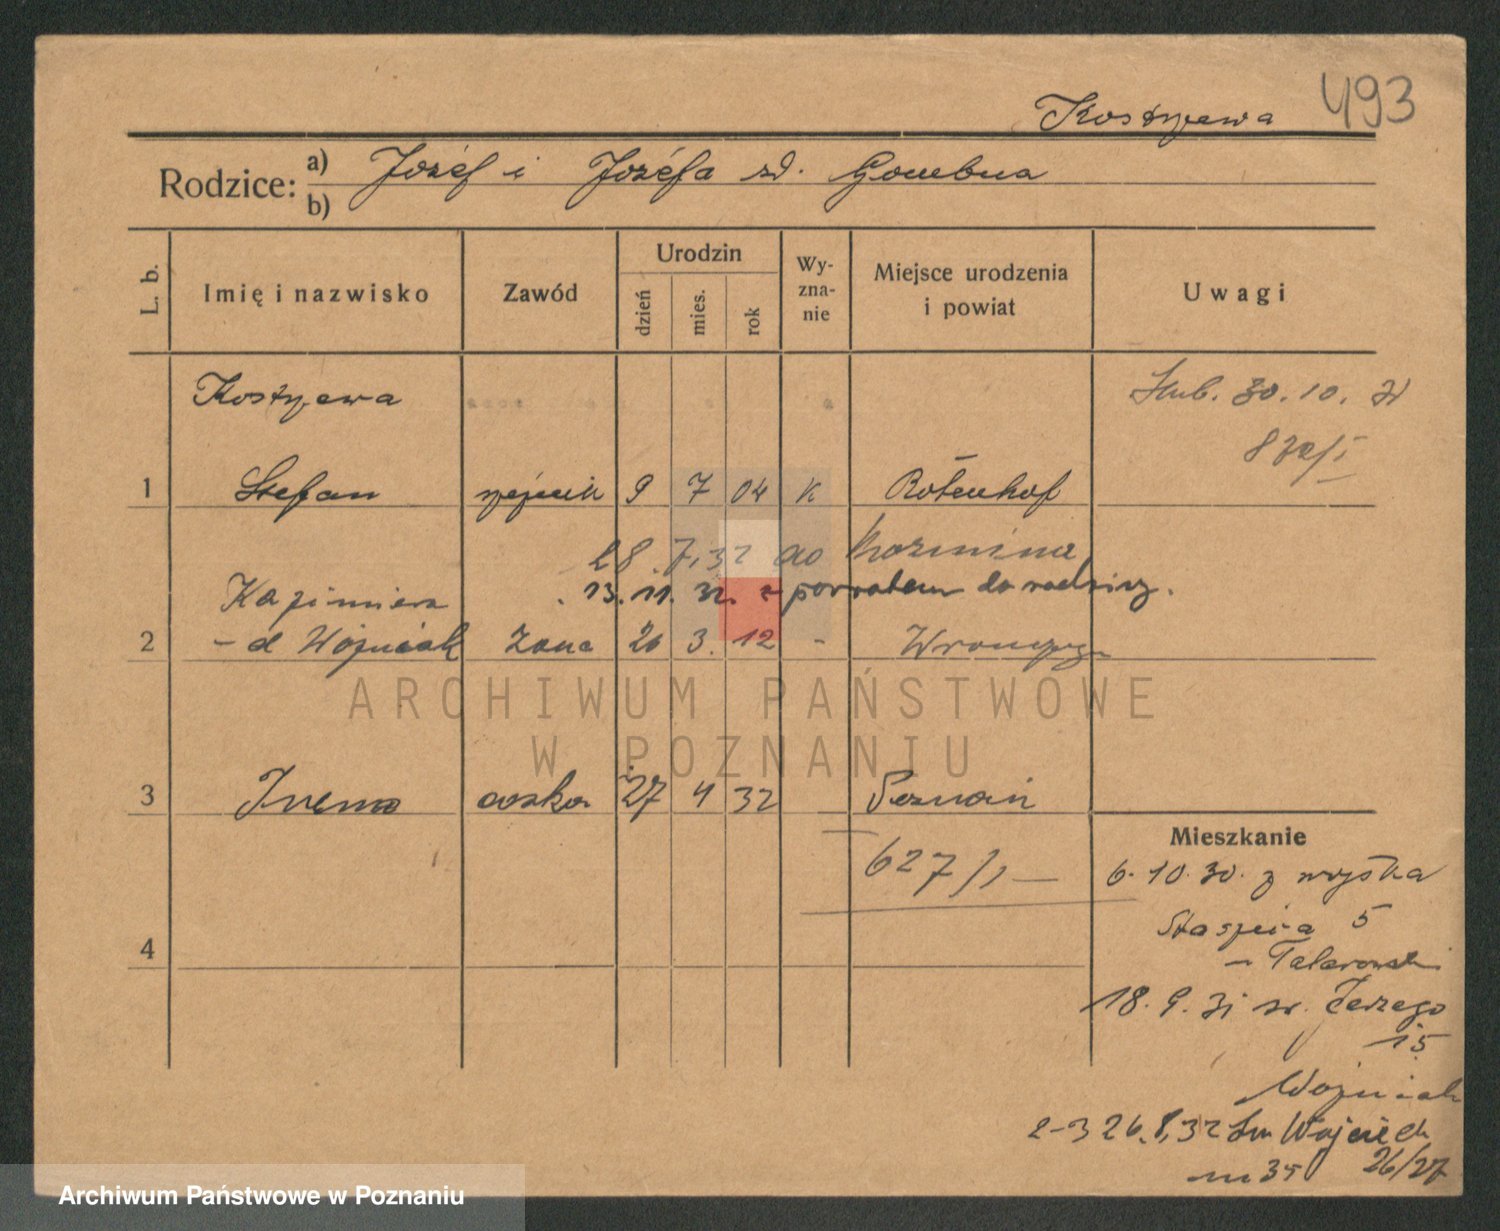 493
Kostrzewa
Rodzice: a) Józef i Józefa zd.
b)
L. b.
Imię i nazwisko
Zawód
Urodzin
dzień
mies.
rok
Wy-
zna-
nie
Miejsce urodzenia
i powiat
Uwagi
Kostrzewa
30. 10.
1 Stefan 9 7 04 K Rótenhof
28. 7. 32 do Kozmina
Kazimiera 13. 11. 32. z powrotem do rodziny.
2 - d Wojniak żona 26 3. 12 -
ARCHIWUM PAŃSTWOWE
W POZNANIU
3 Irena córka 27 4 32 Poznań
Mieszkanie
627/1
6. 10. 30. z wojska
Staszica 5
4
18. 9. 31 św. Jerzego
15
Wojniak
2-3 26. 8. 32 Św Wojciech
26/27
m 35
Archiwum Państwowe w Poznaniu